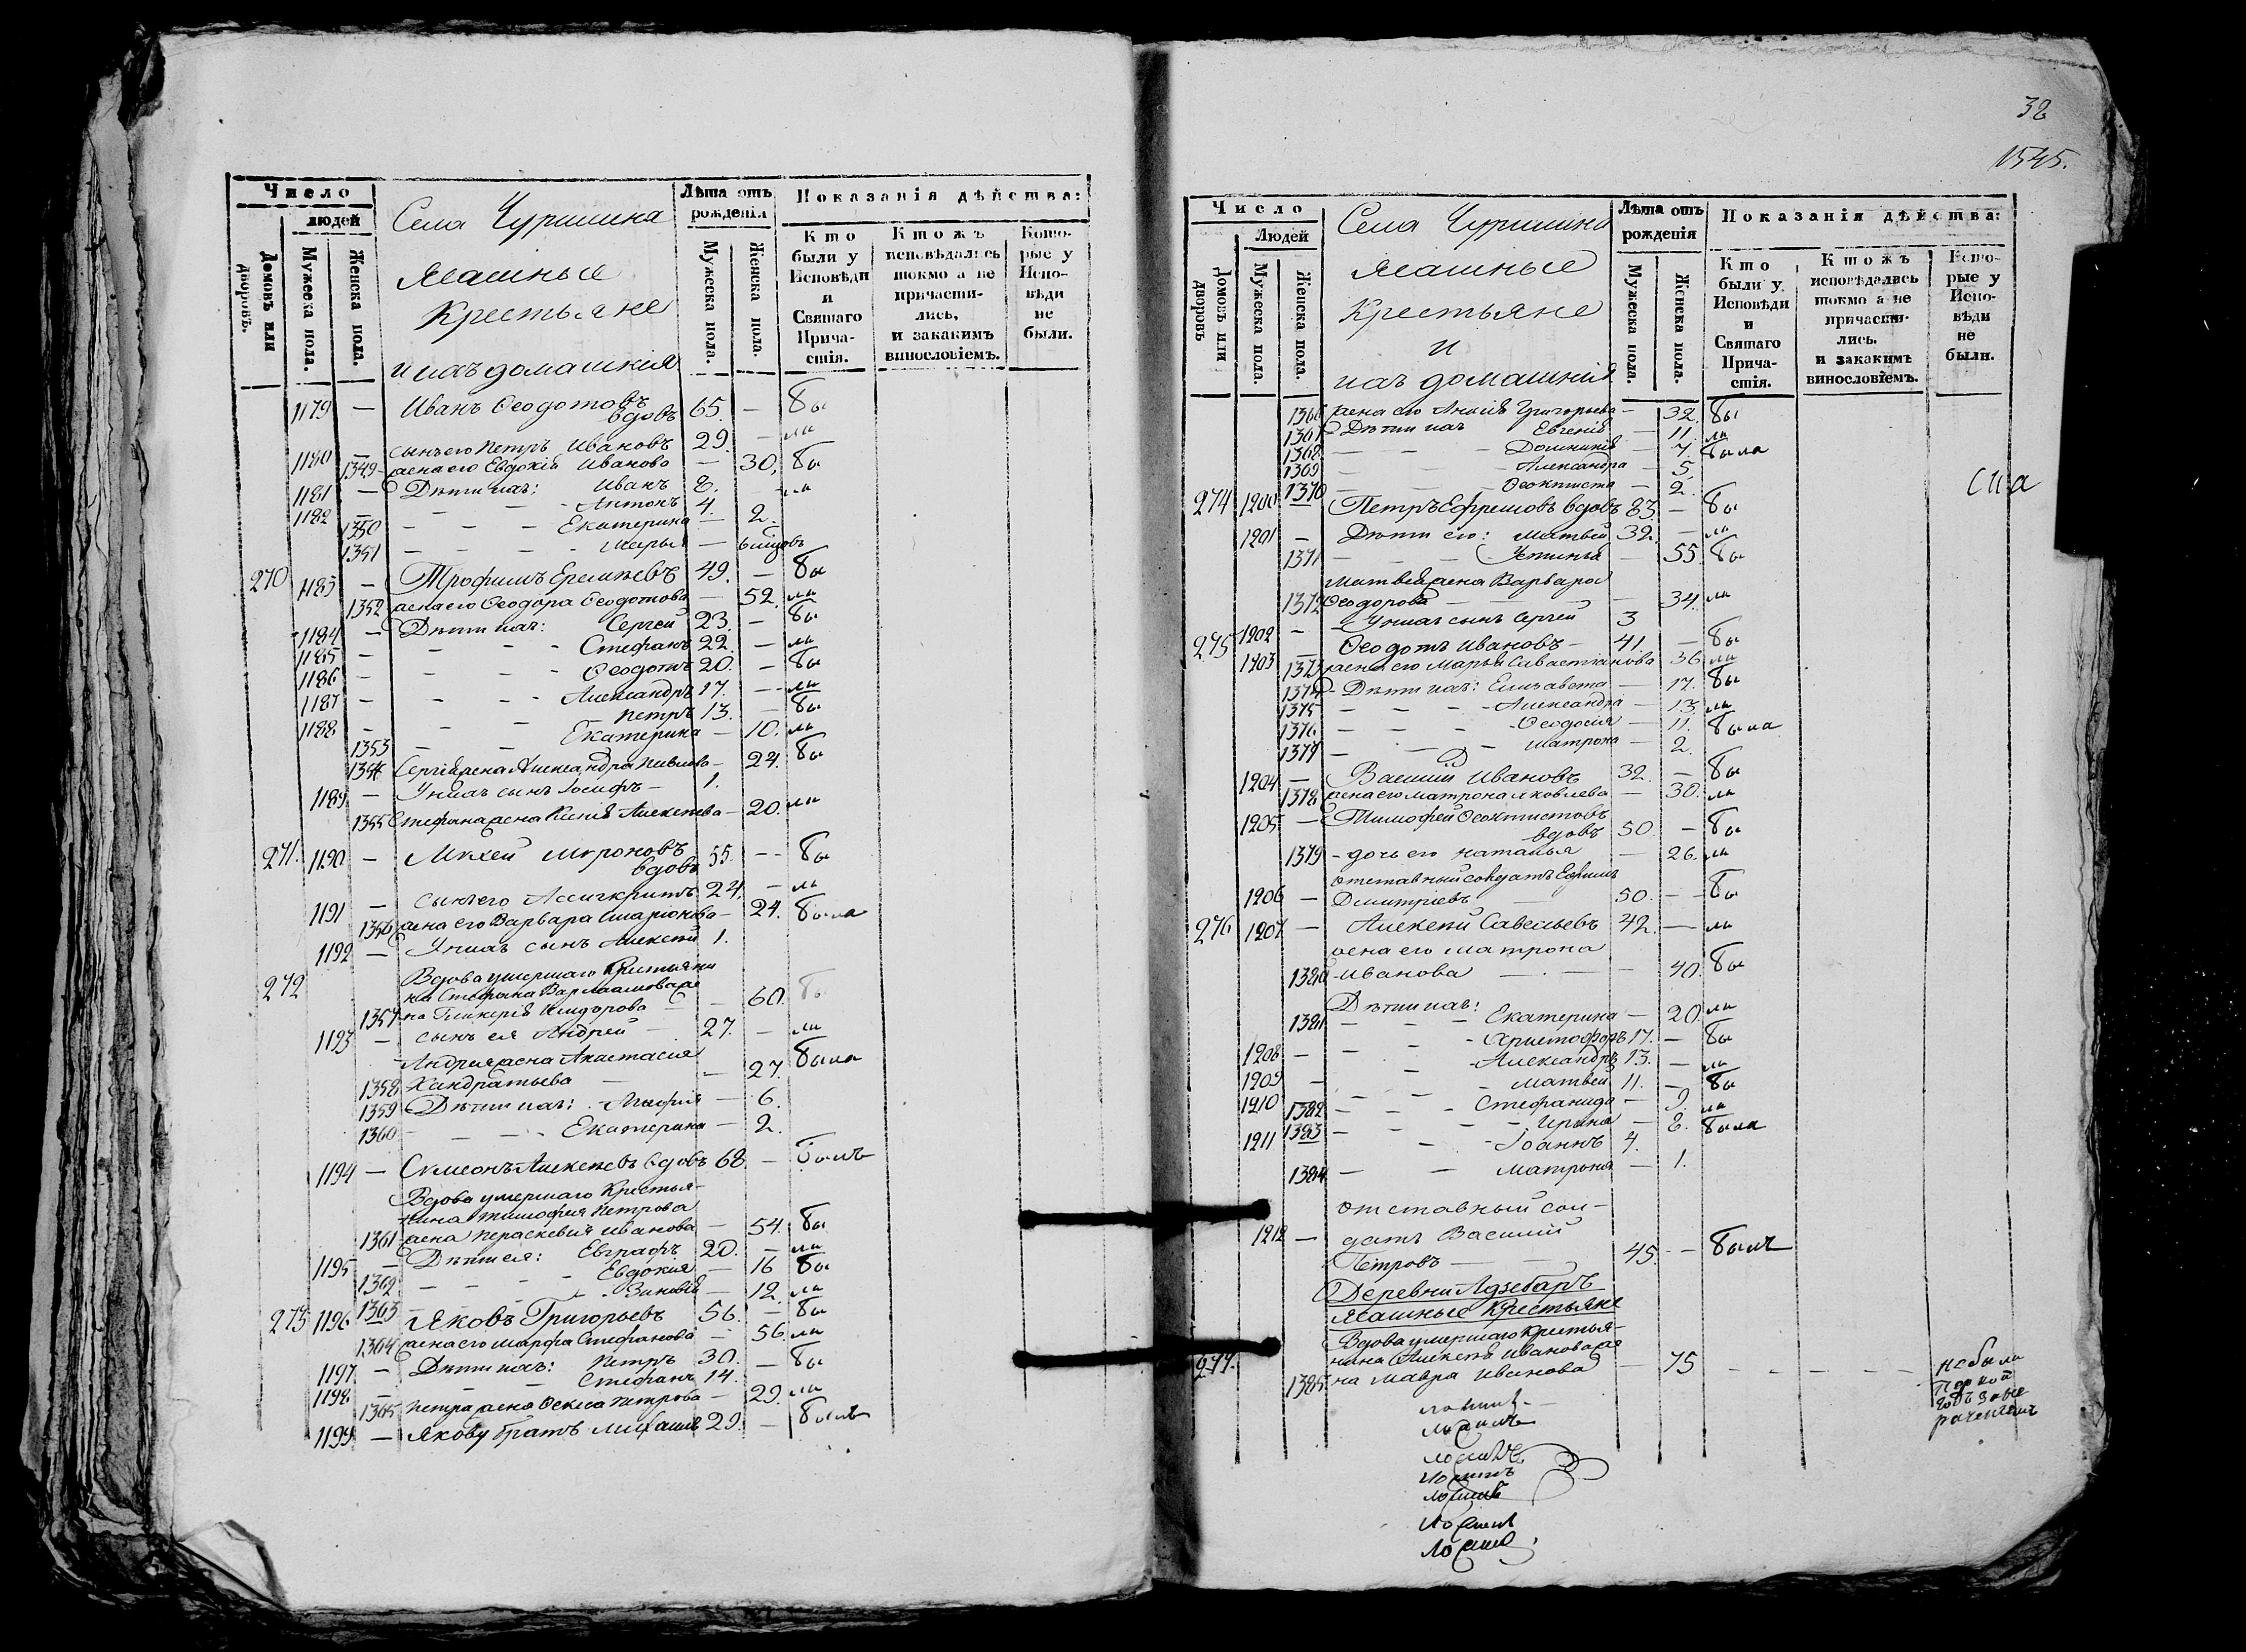 Число
людей
Домовъ или дворовъ.
Мужеска пола.
Женска пола.
Села Чуришина
Ясашные
Крестьяне
и ихъ домашнія
Лѣта отъ рожденія
Мужеска пола.
Женска пола.
Показанія дѣйства:
Кто были у Исповѣди и Святаго Прича-стія.
Ктожъ исповѣдались токмо а не причасти-лись, и закакимъ винословіемъ.
Кото-рые у Испо-вѣди не были.
1179 — Иванъ Ѳеодотовъ вдовъ 65. — бы
1180 — сынъ его Петръ Ивановъ 29. — ли
1349 - жена его Евдокія Иванова — 30, бы
1181 — Дѣти ихъ: Иванъ 8. — ли
1182 — Антонъ 4.
1350 — Екатерина — 2.
1351 — Марья — 6 мцовъ
270 1183 — Трофимъ Еремѣевъ 49. — бы
1352 жена его Ѳеодора Ѳеодотова — 52. ли
1184 — Дѣти ихъ: Сергей 23. — бы
1185 — Стефанъ 22. — ли
1186 — Ѳеодотъ 20. — бы
1187 — Александръ 17. — ли
1188 — Петръ 13. — бы
1353 — Екатерина — 10. ли
1354 Сергѣя жена Александра Павлова — 24. бы
1189 — У нихъ сынъ Іосифъ — 1.
1355 Стефана жена Ксенія Алексѣева — 20. ли
271. 1190 — Михей Мироновъ вдовъ 55. — бы
1191 — сынъ его Ассигкритъ 24. — ли
1356 жена его Варвара Иларионова — 24. была
1192 — У нихъ сынъ Алексѣй 1.
272 Вдова умершаго Крестьяни
на Стефана Варлаамова же
1357 на Гликерія Исидорова — 60. бы
1193 — сынъ ея Андрей — 27. — ли
Андрея жена Анастасия
1358 Кандратьева — 27. была
1359 Дѣти ихъ: Агафия — 6.
1360 — Екатерина — 2.
1194 — Симеонъ Алексѣевъ вдовъ 68. — былъ
Вдова умершаго Крестья-
нина Тимофея Петрова
1361 жена Параскевия Иванова — 54. бы
1195 — Дѣти ея: Евграфъ 20. — ли
1362 — Евдокия — 16 бы
1363 — Зиновія — 12. ли
273 1196 — Яковъ Григорьевъ 56. — бы
1364 жена его Марфа Стефанова — 56. ли
1197. — Дѣти ихъ: Петръ 30. — бы
1198 — Стефанъ 14.
1365 Петра жена Ѳекла Петрова — 29. ли
1199 — Якову братъ 29. — былъ
32
1545.
Число
Людей
Домовъ или дворовъ
Мужеска пола.
Женска пола.
Села Чуришина
Ясашные
Крестьяне
и
ихъ домашнія
Лѣта отъ рожденія
Мужеска пола.
Женска пола.
Показанія дѣйства:
Кто были у Исповѣди и Святаго Прича-стія.
Ктожъ исповѣдались токмо а не причасти-лись. и закакимъ винословіемъ.
Кото-рые у Испо-вѣди не были.
1366 жена его Анисія Григорьева — 32. бы
1367 Дѣти ихъ Евгенія — 11. ли
1368 — Домникія — 7. была
1369 — Александра — 5.
1370 — Ѳеоктиста — 2.
274 1200 — Петръ Ефремовъ вдовъ 83. — бы
1201 — Дѣти его: Матвѣй 32. — ли
1371 — Устинья — 55. бы
Матвѣя жена Варвара
1372 Ѳеодорова — 34. ли
1202 — У нихъ сынъ Сергей 3
275 1203 — Ѳеодотъ Ивановъ — 41. — бы
1373 жена его Марья Савастианова 36 ли
1374 - Дѣти ихъ: Елисавета — 17. бы
1375 — Александра — 13. ли
1376 — Ѳеодосія — 11. была
1377 — Матрона — 2.
1204 — Василій Ивановъ 32. — бы
1378 жена его Матрона Яковлева — 30. ли
1205 — Тимофей Ѳеоктистовъ
вдовъ 50. — бы
1379 - дочь его Наталья — 26. ли
отставный солдатъ Ефимъ
1206 — Димитріевъ — 50. — бы
276 1207 — Алексѣй Савельевъ 42. — ли
жена его Матрона
1380 Иванова — 40. бы
Дѣти ихъ:
1381 — Екатерина — 20. ли
1208 — Христофоръ 17. — бы
1209 — Александръ 13. — ли
1210 — Матвѣй 11. — бы
1382 — Стефанида — 9. ли
1383 — Ирина — 8. была
1211 — Іоаннъ 4.
1384 — Матрона — 1.
отставный сол-
1212 — датъ Василій
Петровъ — 45. — былъ
Деревни Адзебаръ
Ясашные Крестьяне
Вдова умершаго Крестья-
277. нина Алексѣя Иванова же
1385 на Мавра Иванова — 75
не была